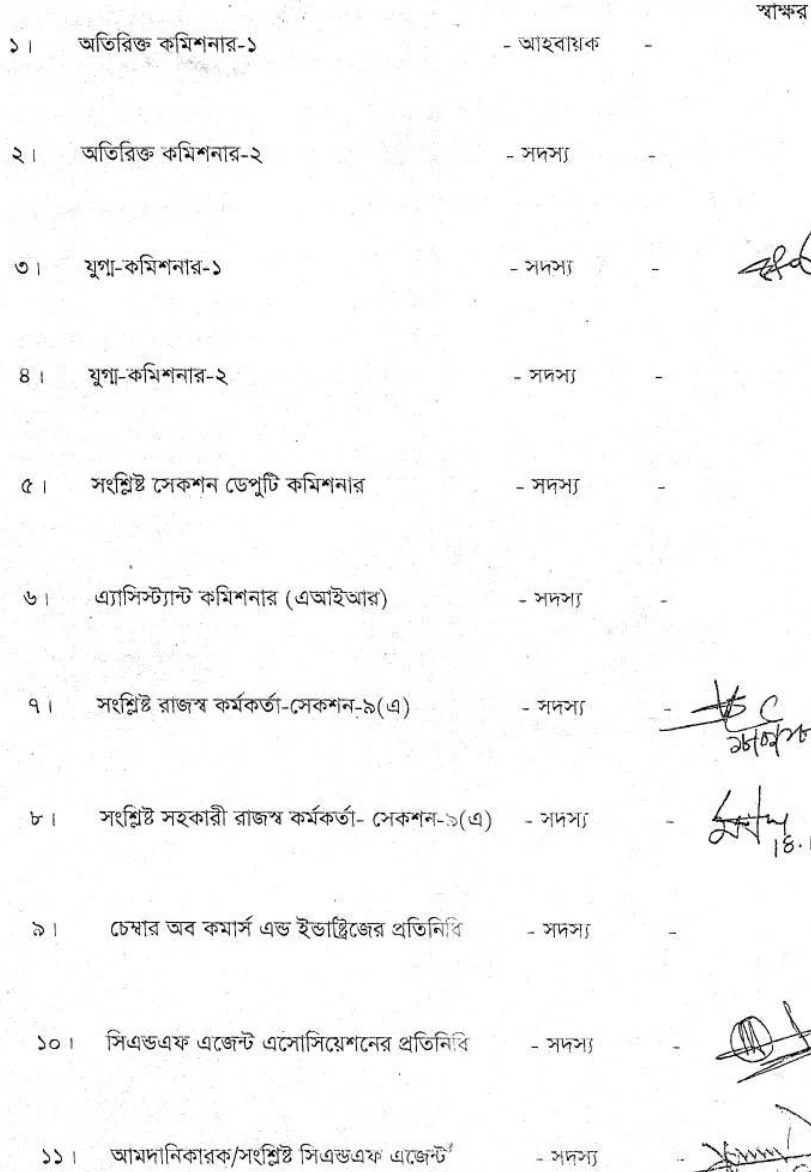 স্বাক্ষর
১। অতিরিক্ত কমিশনার-১ - আহবায়ক -
২। অতিরিক্ত কমিশনার-২ - সদস্য -
৩। যুগ্ম-কমিশনার-১ - সদস্য -
৪। যুগ্ম-কমিশনার-২ - সদস্য -
৫। সংশ্লিষ্ট সেকশন ডেপুটি কমিশনার - সদস্য -
৬। এ্যাসিস্ট্যান্ট কমিশনার (এআইআর) - সদস্য -
৭। সংশ্লিষ্ট রাজস্ব কর্মকর্তা-সেকশন-৯(এ) - সদস্য -
৮। সংশ্লিষ্ট সহকারী রাজস্ব কর্মকর্তা- সেকশন-৯(এ) - সদস্য -
৯। চেম্বার অব কমার্স এন্ড ইন্ডাষ্ট্রিজের প্রতিনিধি - সদস্য -
১০। সিএন্ডএফ এজেন্ট এসোসিয়েশনের প্রতিনিধি - সদস্য -
১১। আমদানিকারক/সংশ্লিষ্ট সিএন্ডএফ এজেন্ট - সদস্য -